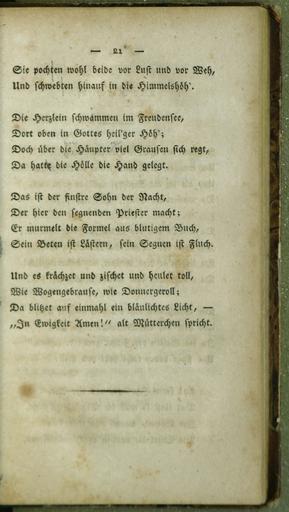 — 21 —
Sie pochten wohl beide vor Lust und vor Weh,
Und schwebten hinauf in die Himmelshöh'.
Die Herzlein schwammen im Freudensee,
Dort oben in Gottes heil'ger Höh';
Doch über die Häupter viel Grausen sich regt,
Da hatte die Hölle die Hand gelegt.
Das ist der finstre Sohn der Nacht,
Der hier den segnenden Priester macht;
Er murmelt die Formel aus blutigem Buch,
Sein Beten ist Lästern, sein Segnen ist Fluch.
Und es krächzet und zischet und heulet toll,
Wie Wogengebrause, wie Donnergeroll;
Da blitzet auf einmahl ein bläulichtes Licht, —
„In Ewigkeit Amen!“ alt Mütterchen spricht.